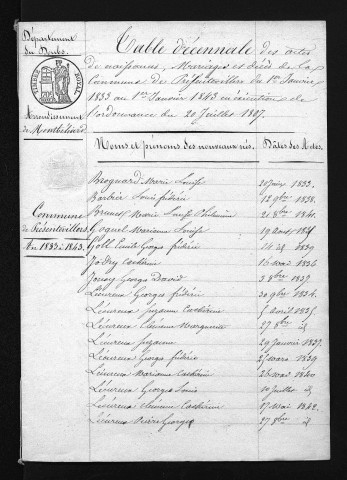 Département
du Doubs.
TIMBRE ROYAL
Arrondissement
de Montbéliard
Commune
de Présentevillers.
An 1833 à 1843.
Table décennale des actes
de naissances, Mariages et décès de la
Commune de Présentevillers du 1er Janvier
1833 au 1er Janvier 1843 en exécution de
l'ordonnance du 20 Juillet 1807.
Noms et prénoms des nouveaux nés. Dates des Actes.
Brognard Marie Louise 1833.
Barbier Louis frédéric 12 9bre 1838.
Marie Louise Philomène 21 8bre 1841.
Marianne Louise 19 août
Emile Georges frédéric 1839
Jodry Catherine 16 mai 1836
Georges David 3 8bre 1837.
Lheureux Georges frédéric 30 9bre 1834.
Lheureux Suzanne Catherine 5 avril 1835.
Lheureux Marguerite 27 8bre id
Lheureux Suzanne 29 Janvier 1837.
Lheureux Georges frédéric 27 mars 1839
Lheureux Marianne Catherine 26 mai 1840.
Lheureux Georges Louis 10 Juillet id
Lheureux Catherine 17 mai 1842.
Lheureux Pierre Georges 27 8bre id